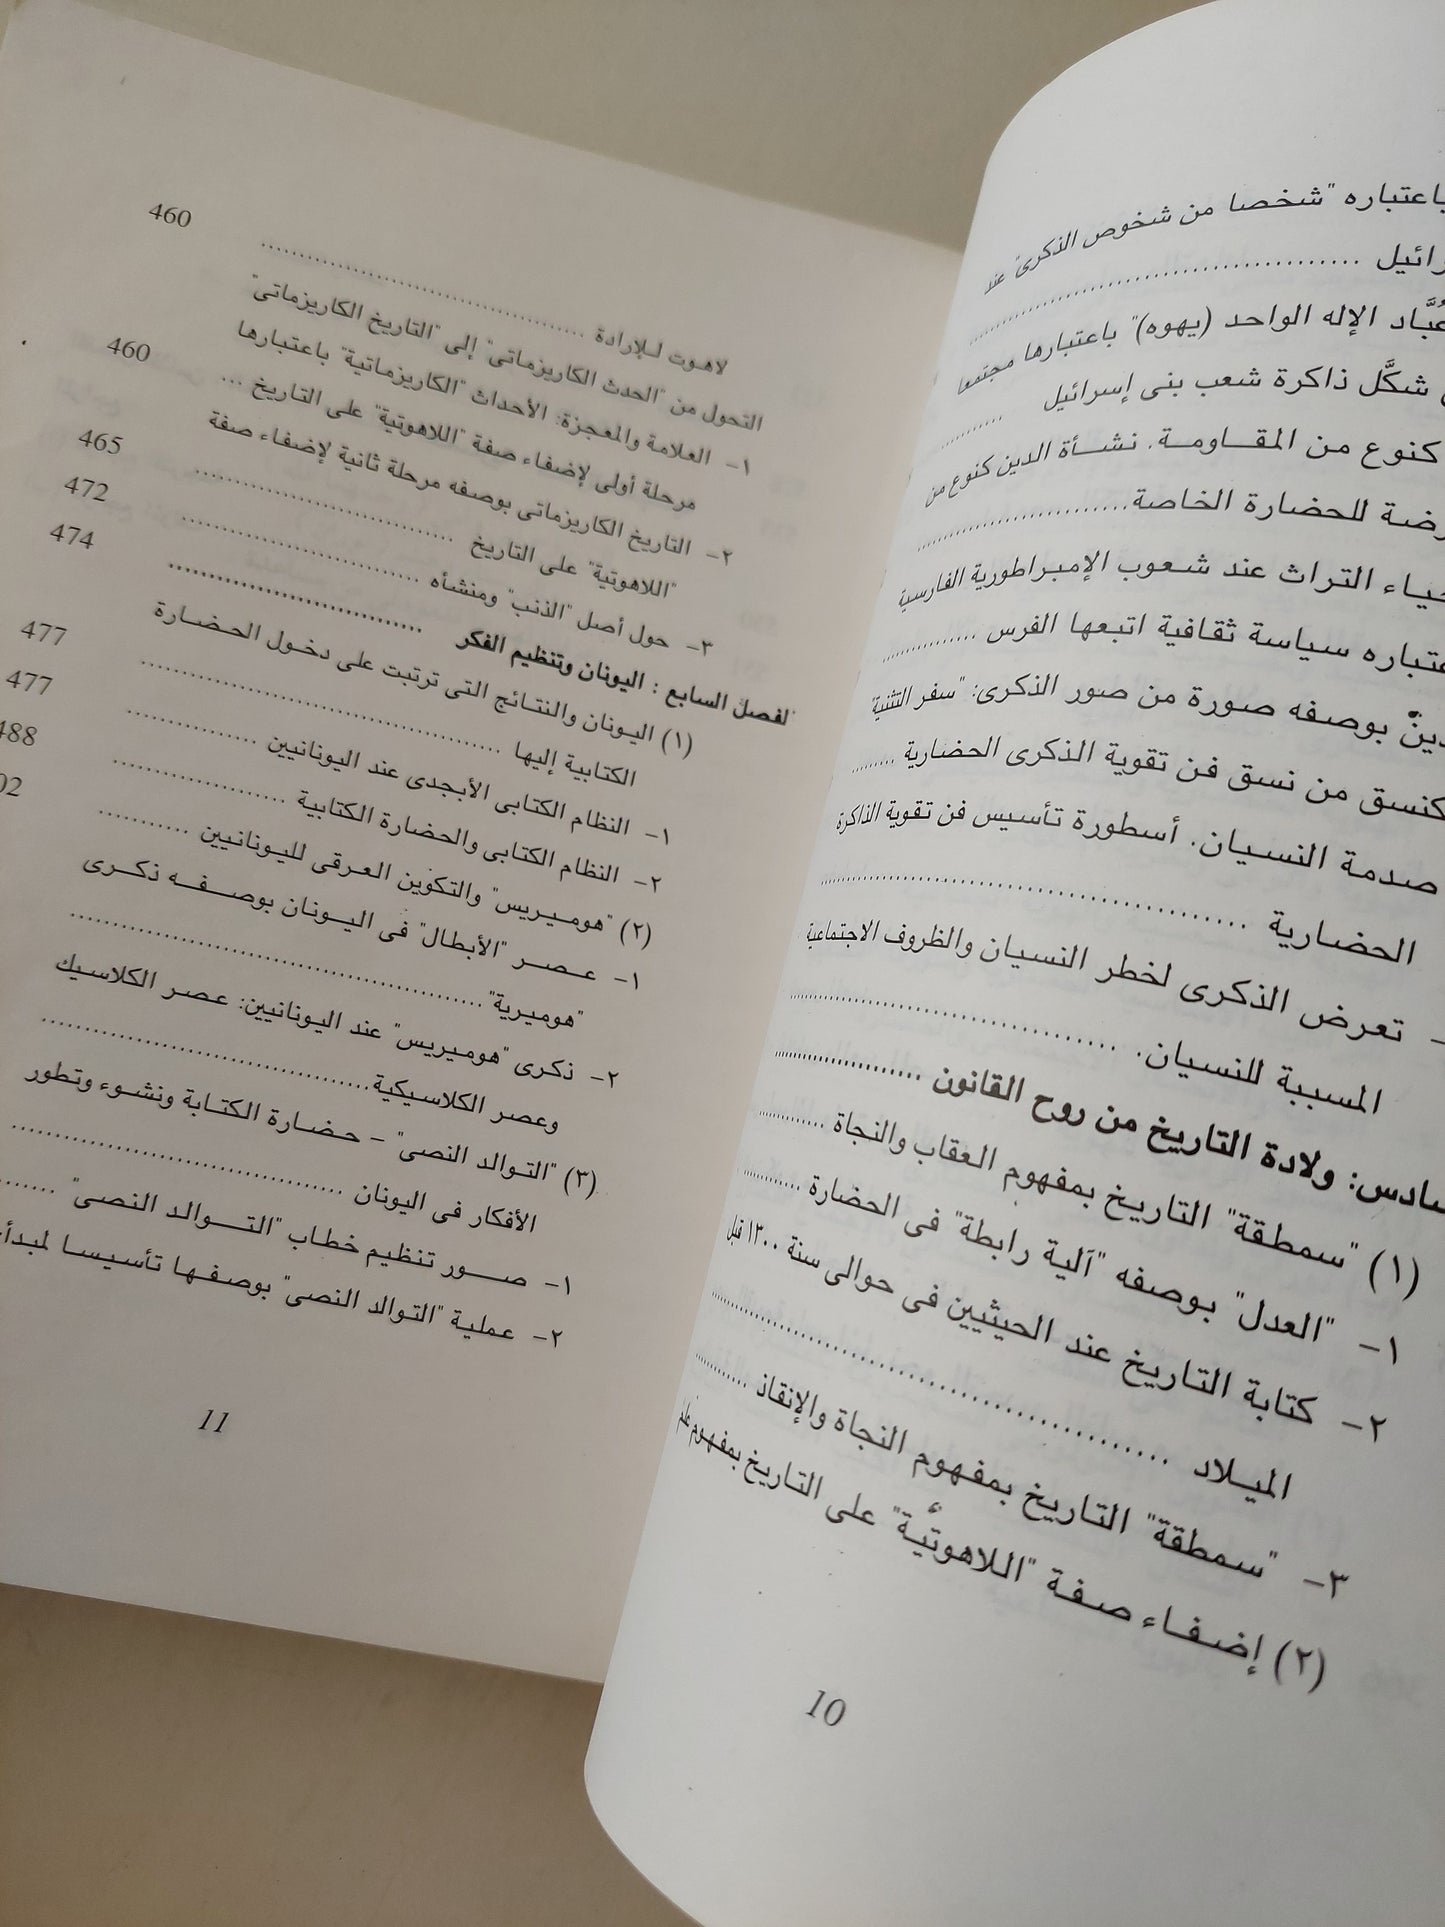 باعتباره "شخصا من شخوص الذكرى" عند
رائيل ........................
عُبَّاد الإله الواحد (يهوه)" باعتبارها مجتمعا
شكَّل ذاكرة شعب بنى إسرائيل ............
كنوع من المقاومة. نشأة الدين كنوع من
رضة للحضارة الخاصة........................
حياء التراث عند شعوب الإمبراطورية الفارسية
عتباره سياسة ثقافية اتبعها الفرس ............
دينٌ بوصفه صورة من صور الذكرى: "سفر التثنية
كنسق من نسق فن تقوية الذكرى الحضارية .........
صدمة النسيان. أسطورة تأسيس فن تقوية الذاكرة
الحضارية ........................
- تعرض الذكرى لخطر النسيان والظروف الاجتماعية
المسببة للنسيان. ........................
سادس: ولادة التاريخ من روح القانون ..................
(١) "سمطقة" التاريخ بمفهوم العقاب والنجاة ............
١- "العدل" بوصفه "آلية رابطة" فى الحضارة ............
٢- كتابة التاريخ عند الحيثيين فى حوالى سنة ١٣٠٠ قبل
الميلاد ........................
٣- "سمطقة" التاريخ بمفهوم النجاة والإنقاذ ............
(٢) إضفاء صفة "اللاهوتَّية" على التاريخ بمفهوم علم
10
لاهوت للإرادة ........................ 460
التحول من "الحدث الكاريزماتى" إلى "التاريخ الكاريزماتى"
١- العلامة والمعجزة: الأحداث "الكاريزماتية" باعتبارها
مرحلة أولى لإضفاء صفة "اللاهوتية" على التاريخ ... 460
٢- التاريخ الكاريزماتى بوصفه مرحلة ثانية لإضفاء صفة
"اللاهوتية" على التاريخ ........................ 465
٣- حول أصل "الذنب" ومنشأه ........................ 472
لفصل السابع : اليونان وتنظيم الفكر ........................ 474
(١) اليونان والنتائج التى ترتبت على دخول الحضارة
الكتابية إليها ........................ 477
١- النظام الكتابى الأبجدى عند اليونانيين ............ 477
٢- النظام الكتابى والحضارة الكتابية .................. 488
(٢) "هوميريس" والتكوين العرقى لليونانيين ............ 02
١- عصر "الأبطال" فى اليونان بوصفه ذكرى
"هوميرية" ........................
٢- ذكرى "هوميريس" عند اليونانيين: عصر الكلاسيك
وعصر الكلاسيكية........................
(٣) "التوالد النصى" – حضارة الكتابة ونشوء وتطور
الأفكار فى اليونان ........................
١- صور تنظيم خطاب "التوالد النصى" .........
٢- عملية "التوالد النصى" بوصفها تأسيسا لمبدأ
11